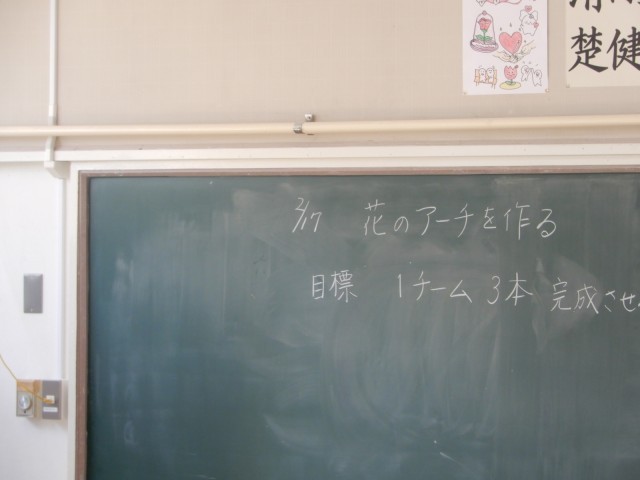 楚健
2/17 花のアーチを作る
目標 1チーム 3本 完成させ